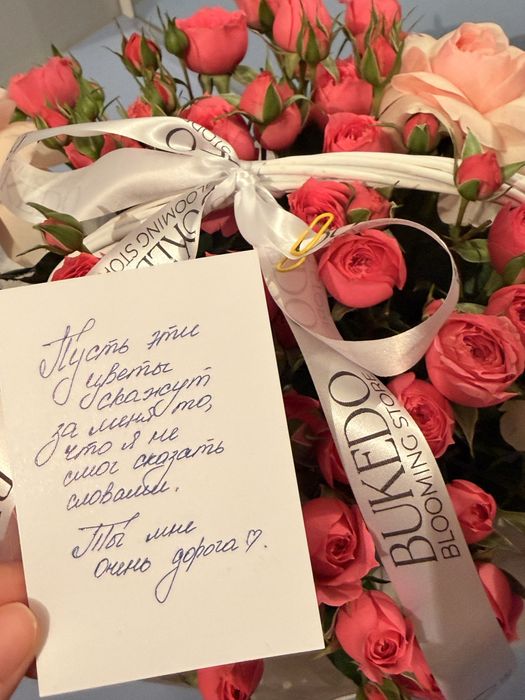 Пусть эти
цветы
скажут
за меня то,
что я не
смог сказать
словами.
Ты мне
очень дорога♡.
BUKEDO
BLOOMING STORE